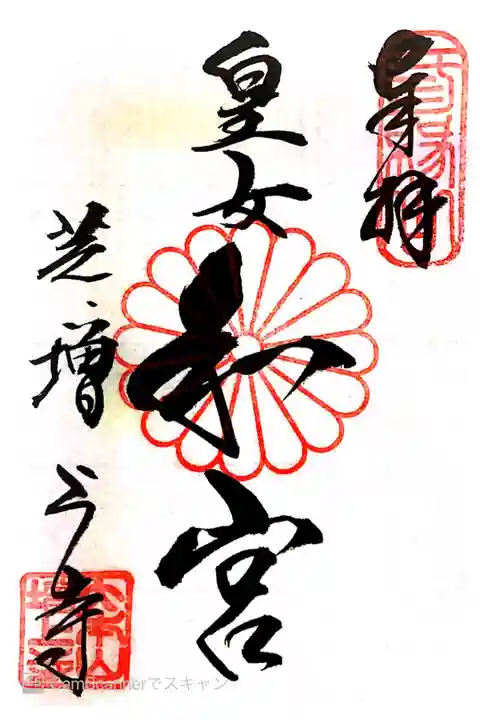 奉拝
皇女
和宮
芝増上寺
CamScannerでスキャン